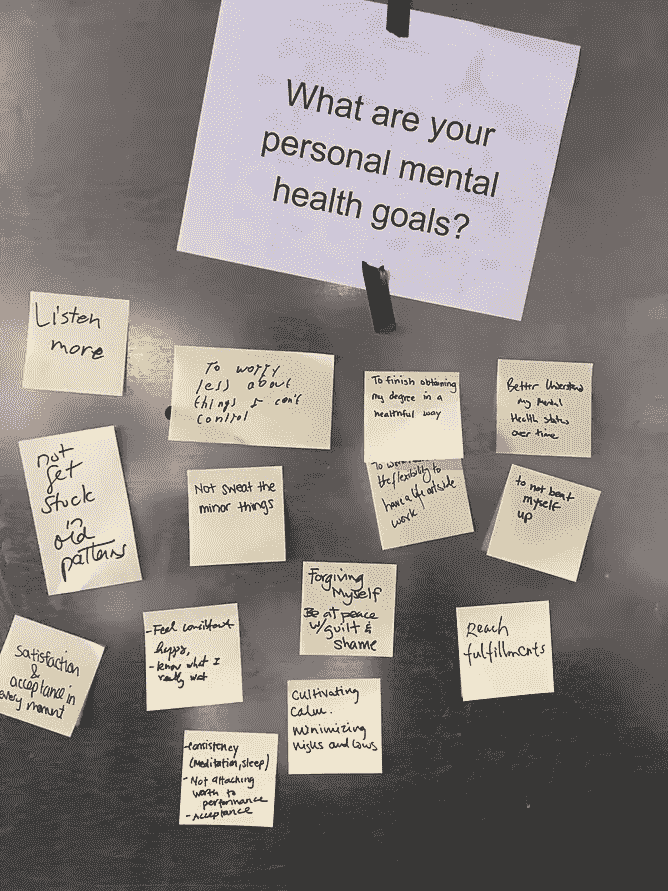 What are your
personal mental
health goals?
Listen
more
To worry
less about
things I can't
control
To finish obtaining
my degree in a
healthful way
Better Understand
My Mental
Health status
over time
not
get
stuck
in
old
patterns
Not sweat the
minor things
the flexibility to
have a life outside
work
to not beat
myself
up
Forgiving
Myself
Be at peace
w/ guilt &
shame
Satisfaction
&
acceptance in
every moment
-Feel consistent
happy,
-know what I
really want
Reach
fulfillments
Cultivating
calm.
Minimizing
highs and lows
-consistency
(Meditation, sleep)
- Not attaching
worth to
performance
- Acceptance